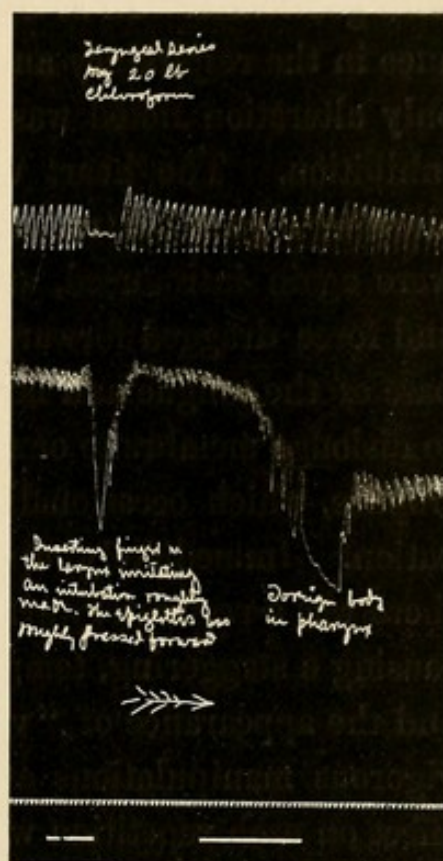 Laryngeal Series
Dog 20 lb
Chloroform
Inserting finger in
the larynx imitating
an intubation roughly
made. The epiglottis was
roughly pressed forward
Foreign body
in pharynx